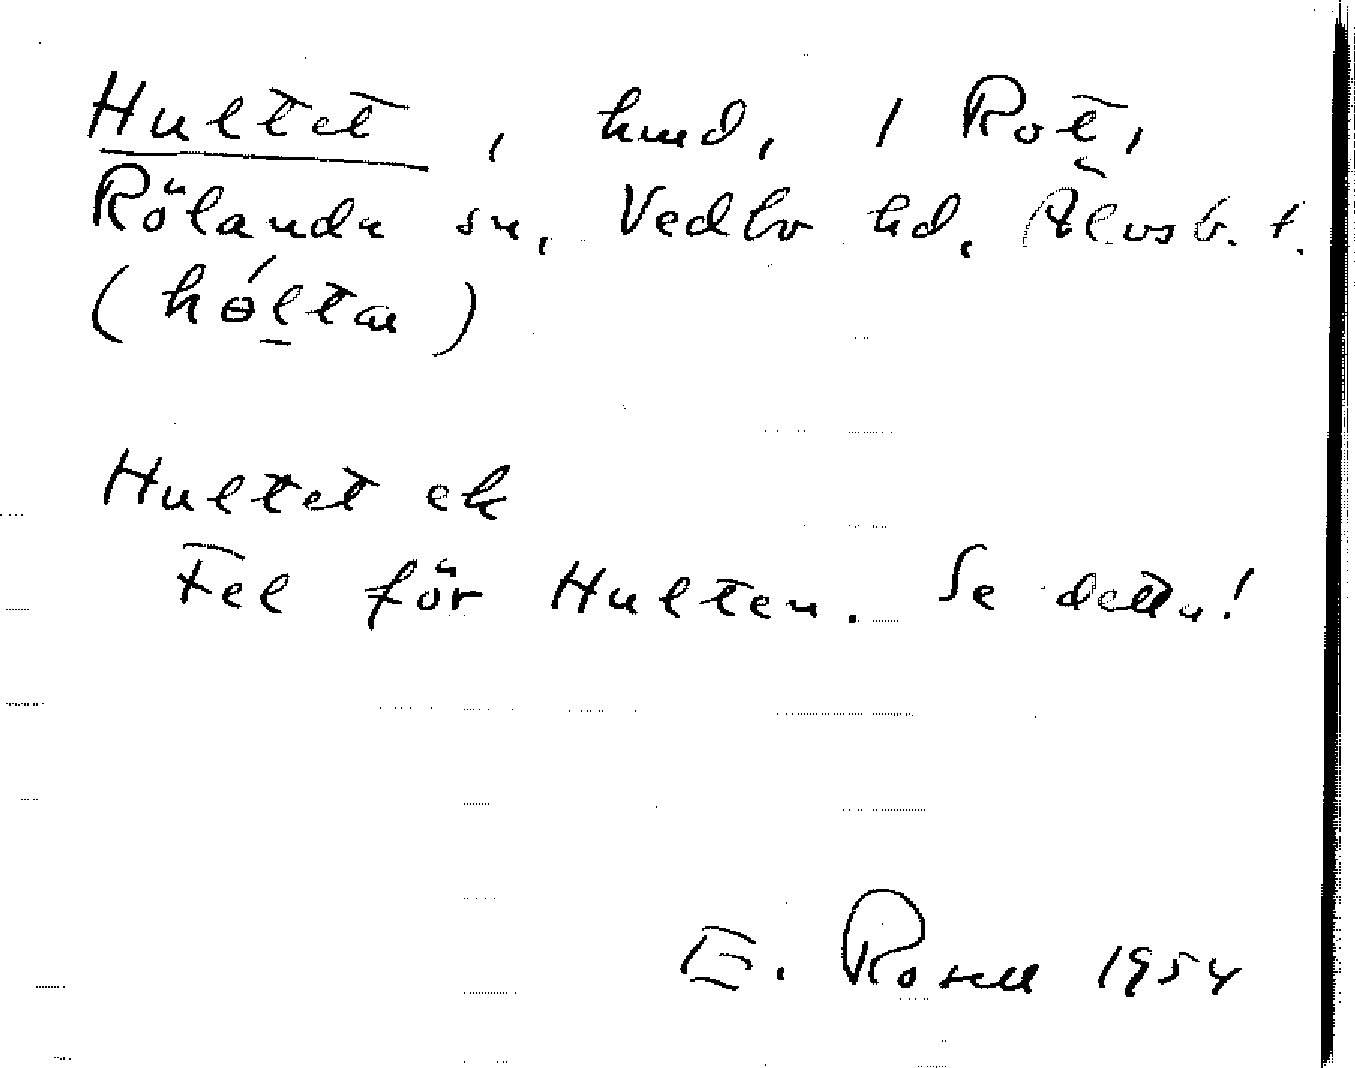 Hultet, hmd, 1 Rot,
Rölanda sn, Vedbo hd, Älvsb. l.
(hóltən)
Hultet ek
Fel för Hulten. Se detta!
E. Rosell 1954